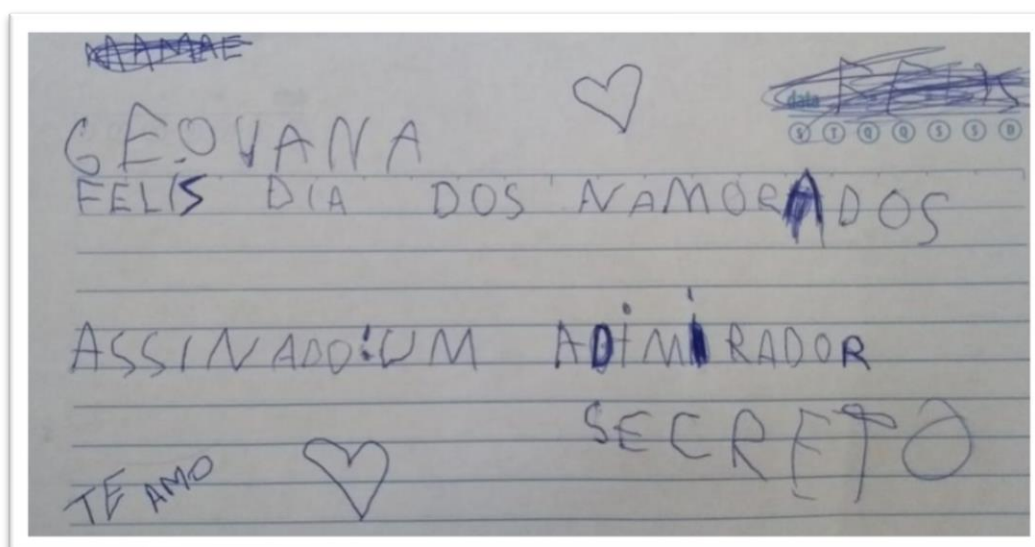 MAMAE
data
S T Q Q S S D
GEOVANA
FELIS DIA DOS NAMORADOS
ASSINADO:UM ADIMIRADOR
SECRETO
TE AMO